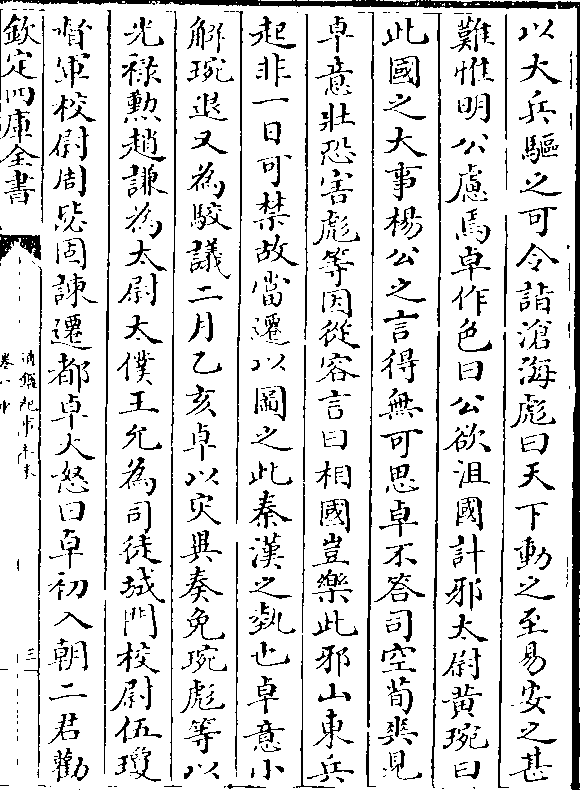 以大兵驅之可令詣滄海彪曰天下動之至易安之甚
難惟明公慮焉卓作色曰公欲沮國計邪太尉黃琬曰
此國之大事楊公之言得無可思卓不答司空荀爽見
卓意壯恐害彪等因從容言曰相國豈樂此邪山東兵
起非一日可禁故當遷以圖之此秦漢之埶也卓意小
解琬退又為駮議二月乙亥卓以災異奏免琬彪等以
光祿勲趙謙為太尉太僕王允為司徒城門校尉伍瓊
督軍校尉周毖固諫遷都卓大怒曰卓初入朝二君勸
欽定四庫全書
通鑑紀事本末
三